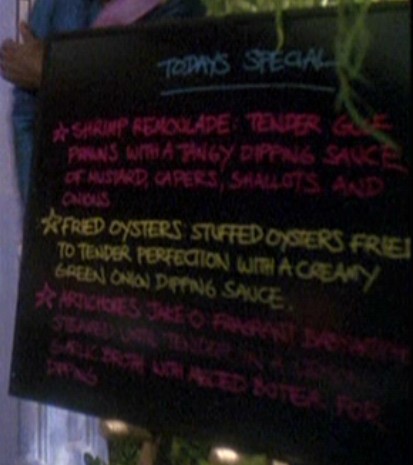 TODAYS SPECIAL
☆ SHRIMP REMOULADE: TENDER GULF
PRAWNS WITH A TANGY DIPPING SAUCE
OF MUSTARD, CAPERS, SHALLOTS AND
ONIONS
☆ FRIED OYSTERS: STUFFED OYSTERS FRIED
TO TENDER PERFECTION WITH A CREAMY
GREEN ONION DIPPING SAUCE.
☆ ARTICHOKES FRAGRANT
STEAMED UNTIL TENDER IN A
GARLIC BROTH WITH MELTED BUTTER FOR
DIPPING